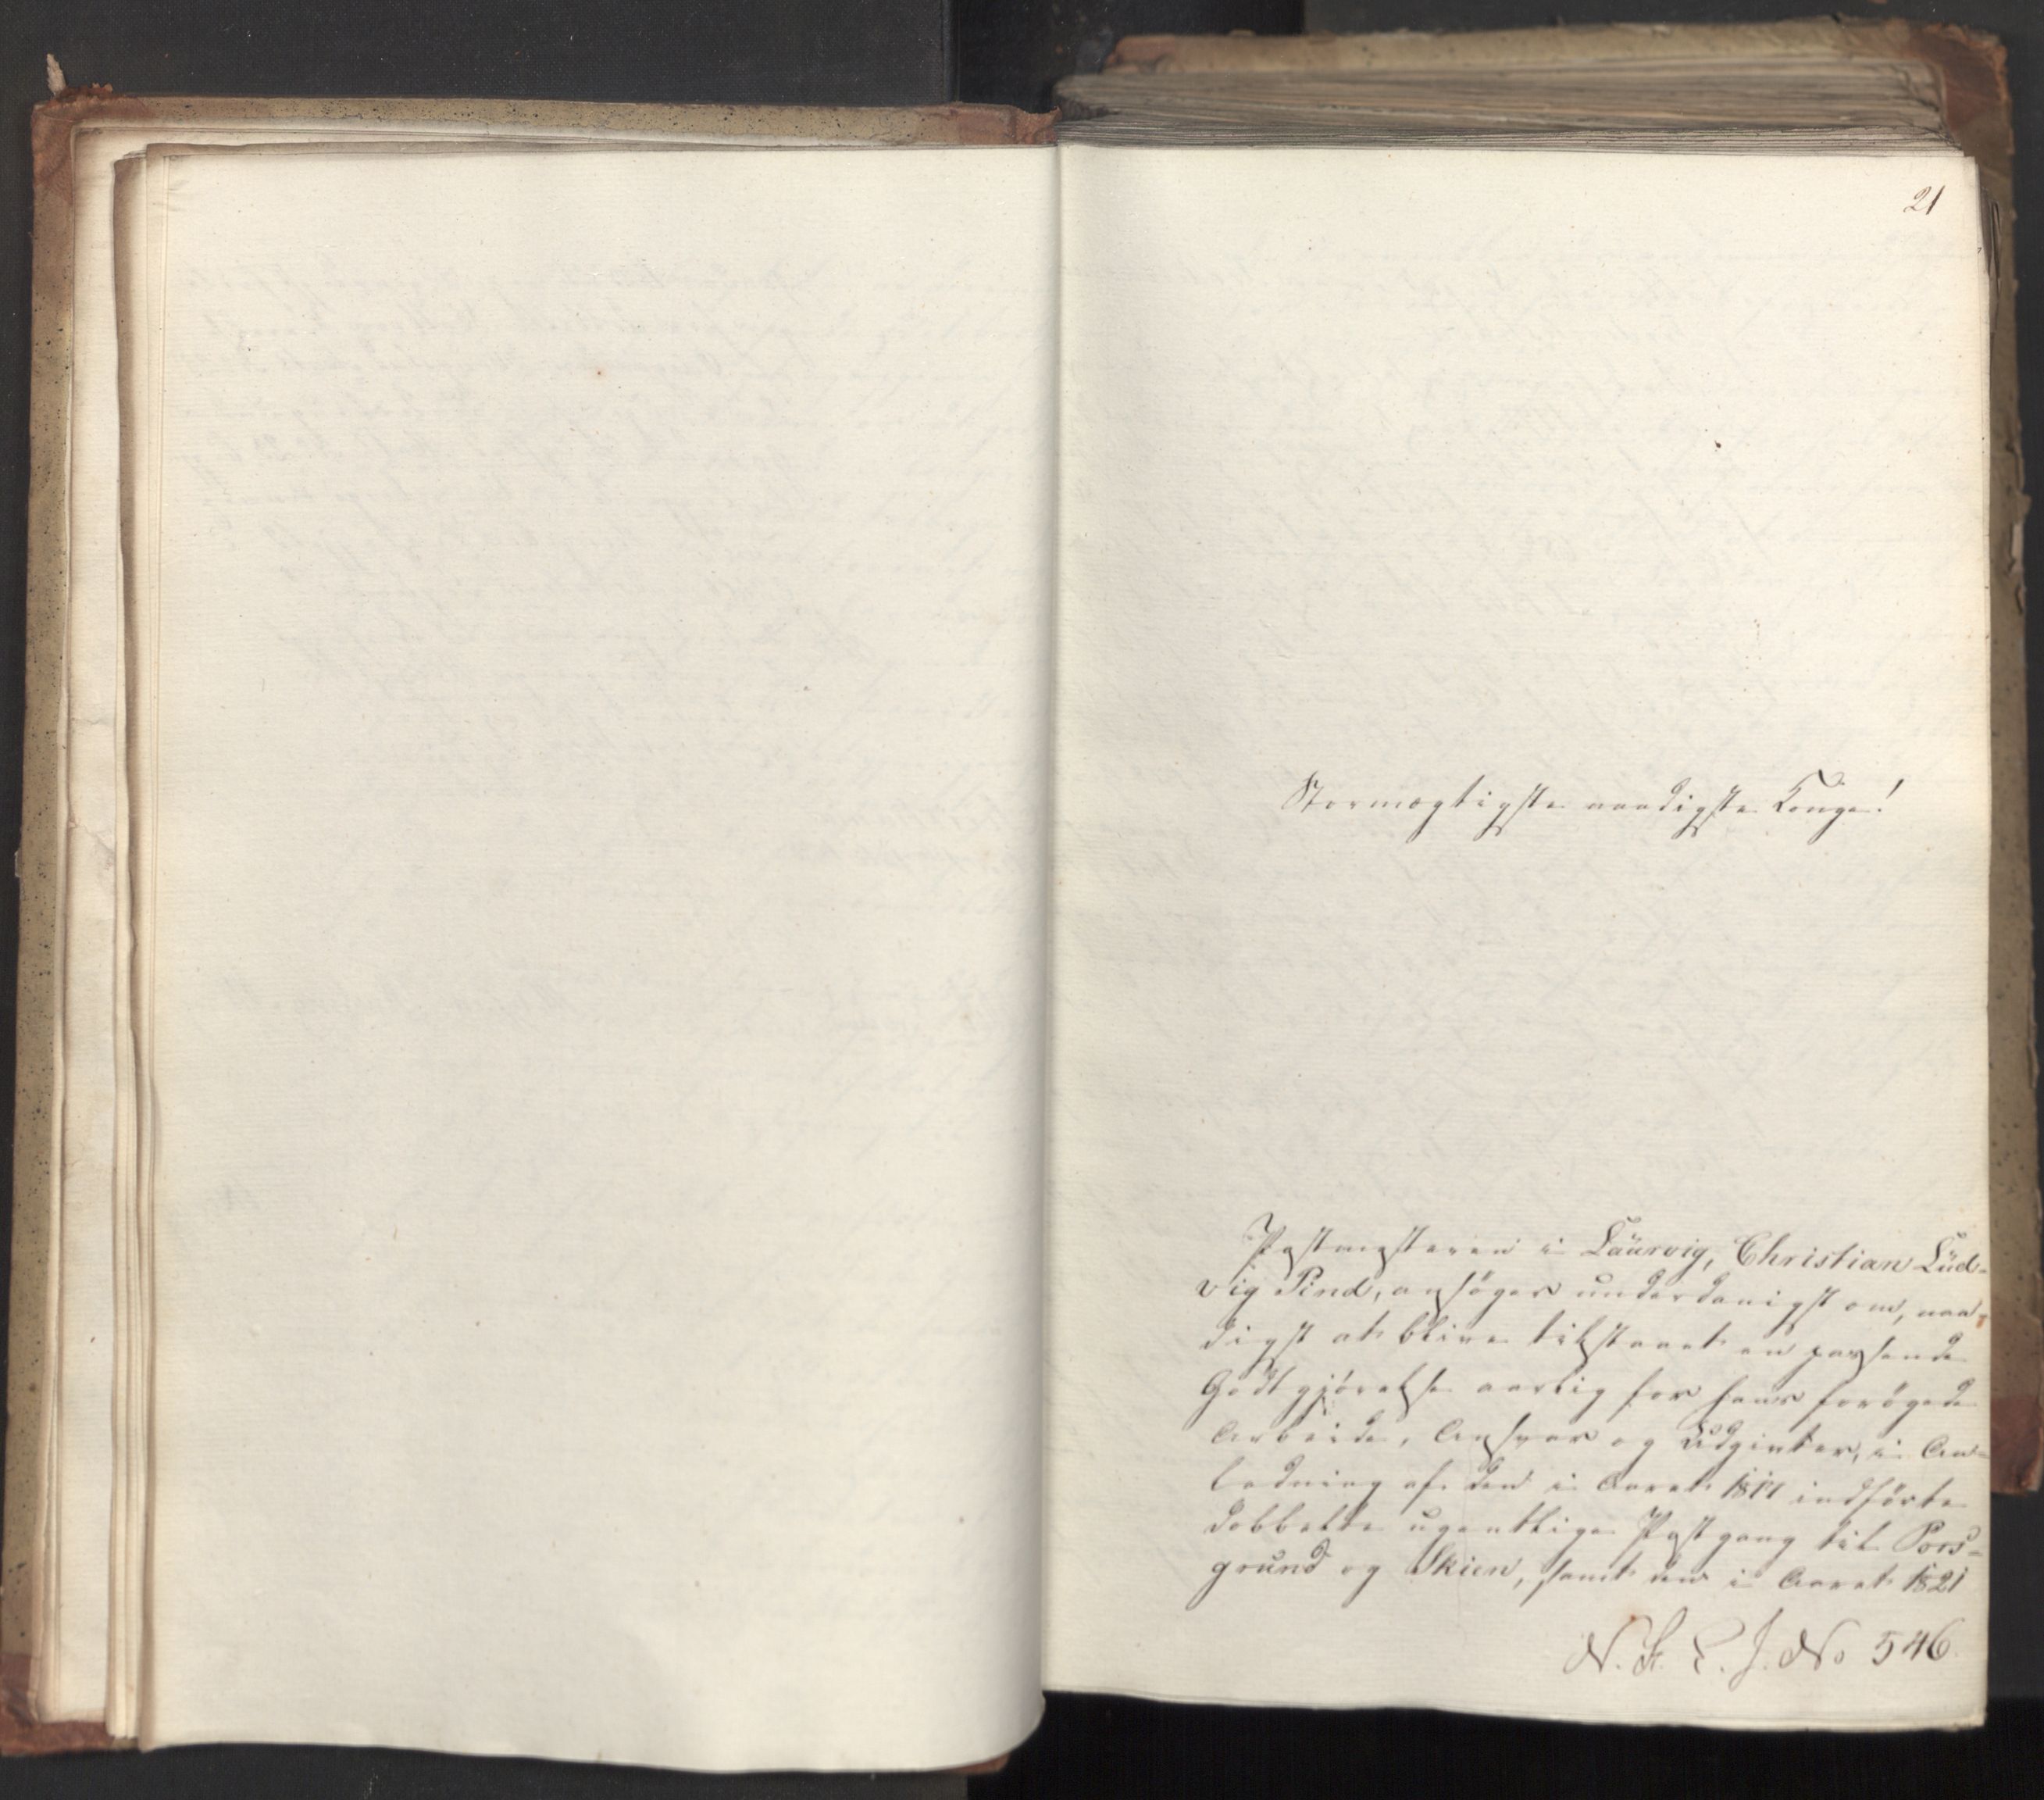 21
Stormægtigste naadigste Konge!
Postmesteren i Laurvig, Christian Lud-
vig Pind, ansøger underdanigst om, naa-
digst at blive tilstaaet en passende
Godtgjørelse aarlig for hans forøgede
Arbeide, Ansvar og Udgivter, i An-
ledning af den i Aaret 1817 indførte
dobbelte ugentlige Postgang til Pors-
grund og Skien, samt den i Aaret 1821
No 546